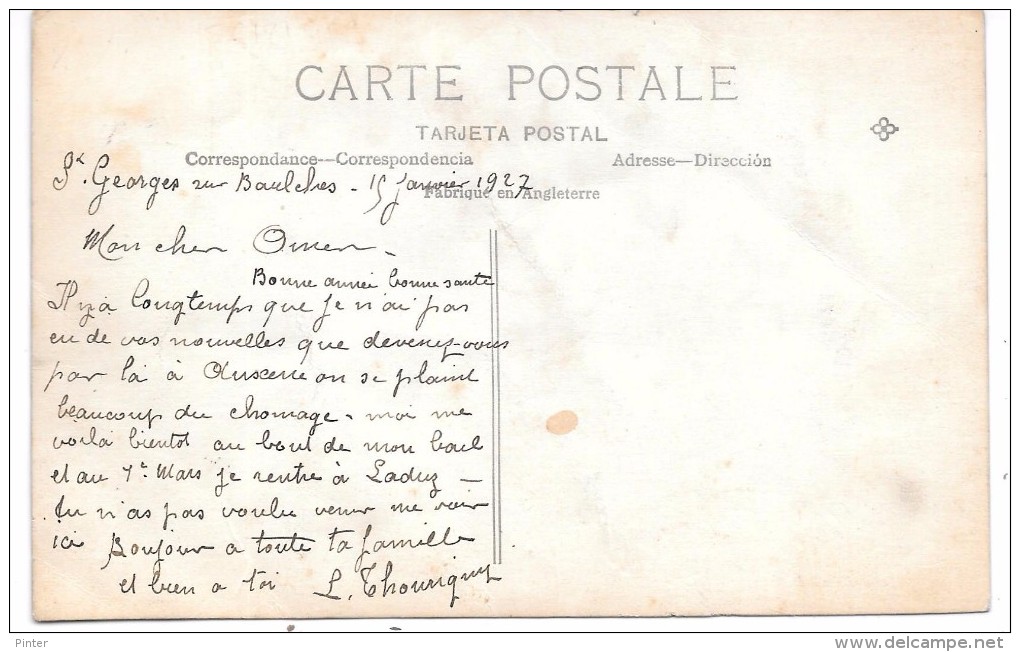 CARTE POSTALE
TARJETA POSTAL
Correspondance—Correspondencia
Adresse—Dirección
St. Georges sur Baulches - 15 janvier 1927
Fabriqué en Angleterre
Mon cher Omer -
Bonne année bonne santé
Il y a longtemps que je n'ai pas
eu de vos nouvelles que devenez-vous
par là à Auxerre on se plaint
beaucoup du chomage - moi me
voilà bientot au bout de mon bail
et au 1er Mars je rentre à Laduz -
tu n'as pas voulu venir me voir
ici Bonjour a toute ta famille
et bien a toi L.
Pinter
www.delcampe.net